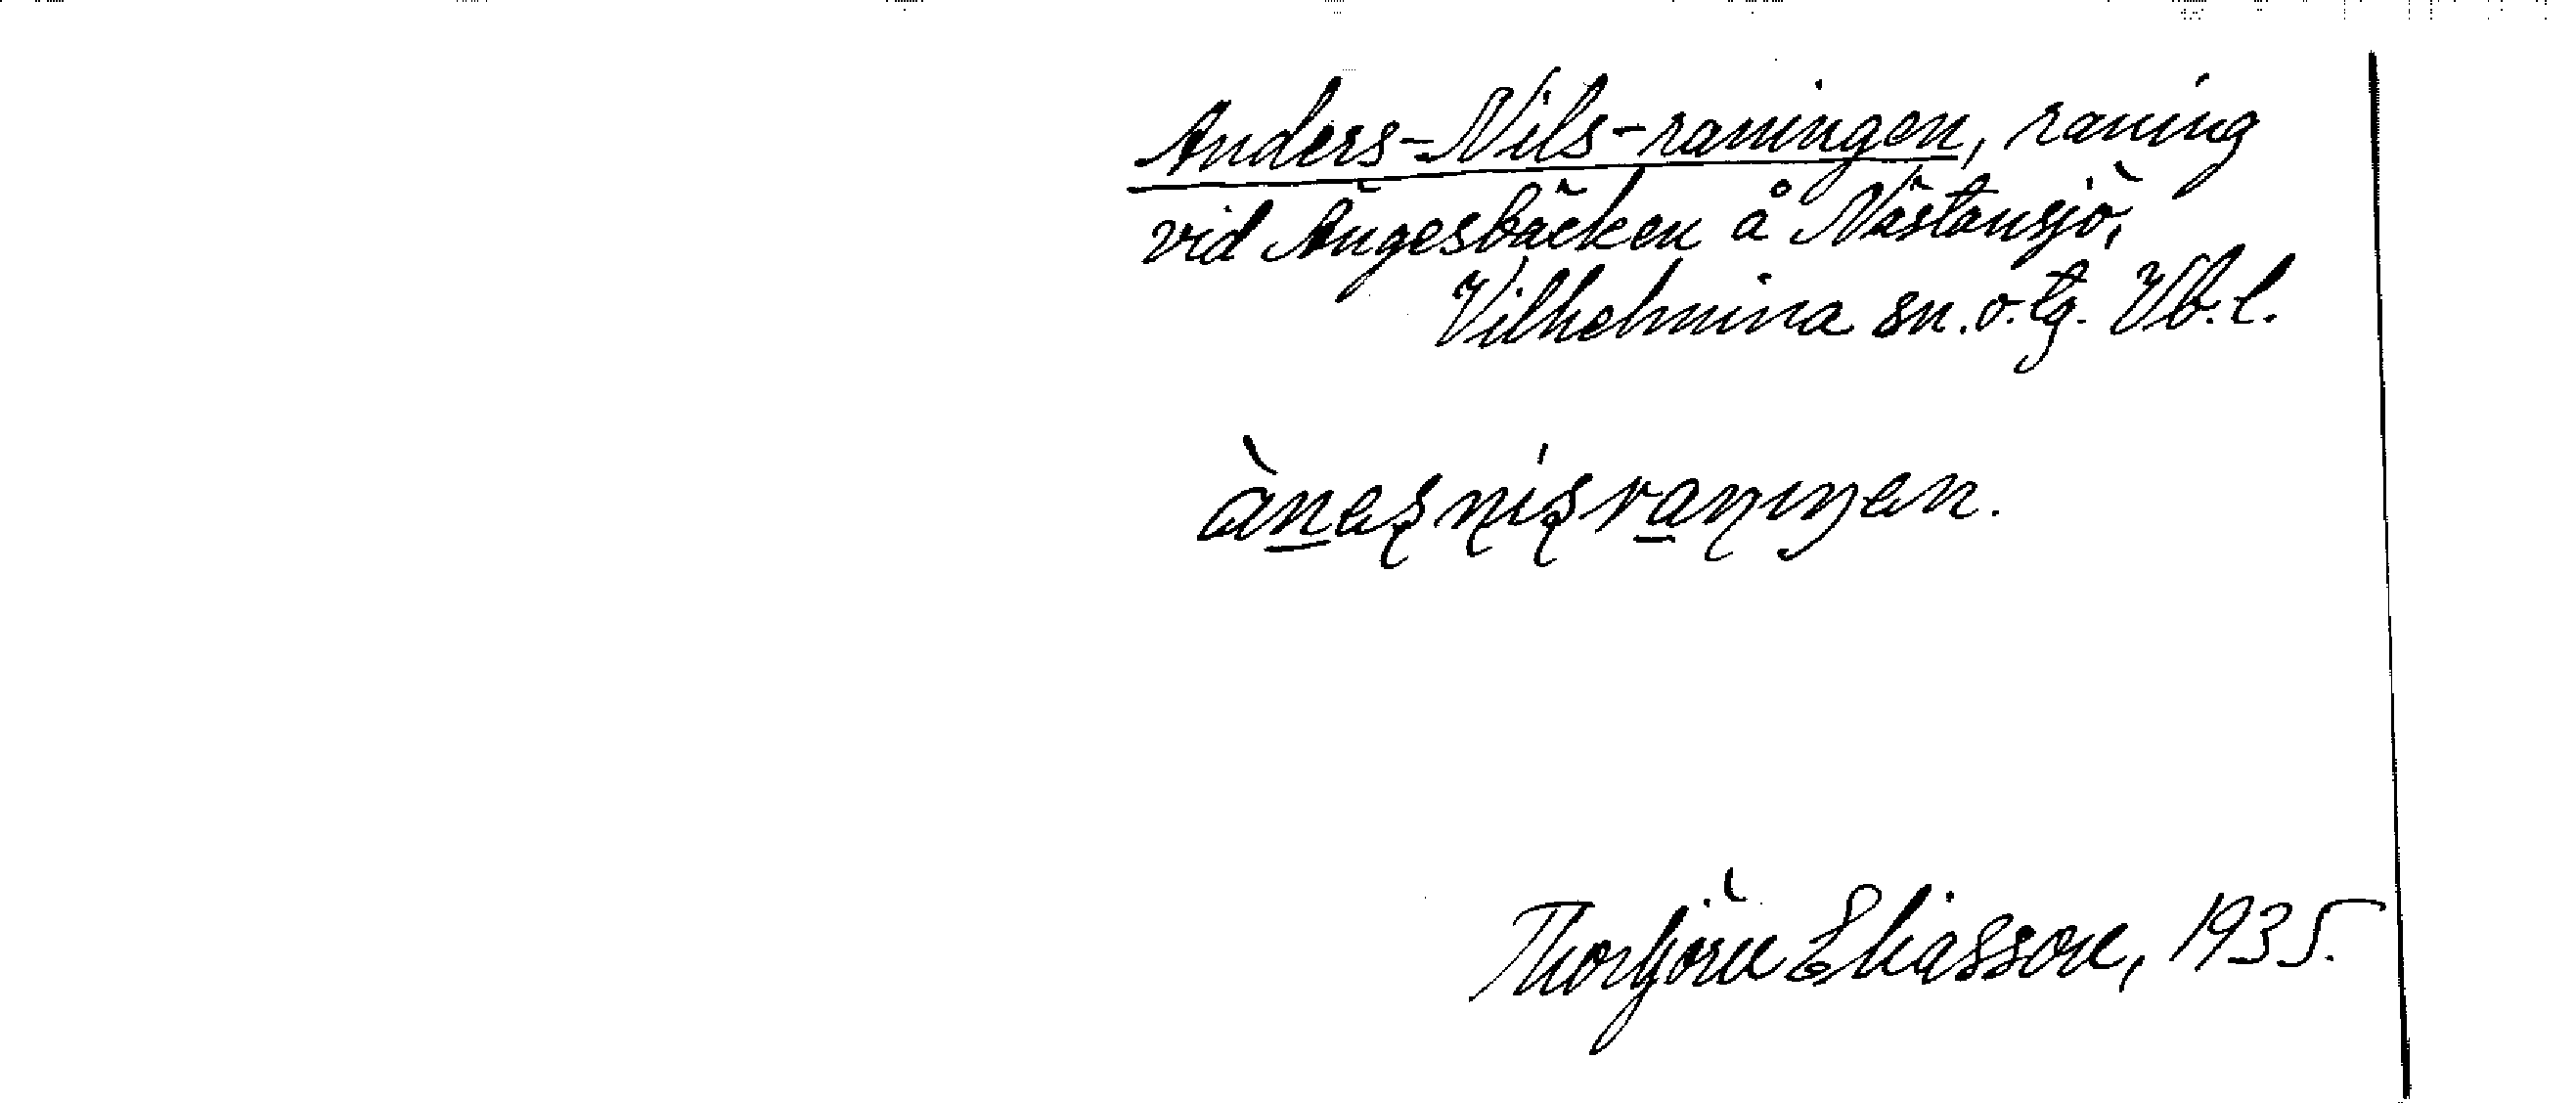 Anders-Nils-raningen, raning
vid Ängesbäcken å Nästansjö,
Vilhelmina sn. o. tg. Vb. l.
Thorbjörn Eliasson, 1935.